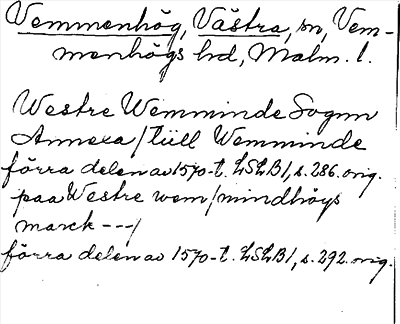 Vemmenhög, Västra, sn, Vem-
menhögs hd, Malm. l.
Westre Wemminde Sognn
Annexa / tiill Wemminde
förra delen av 1570-t. LSLB1, s. 286. orig.
paa Westre wem/mindhöys
marck ---/
förra delen av 1570-t. LSLB1, s. 292. orig.